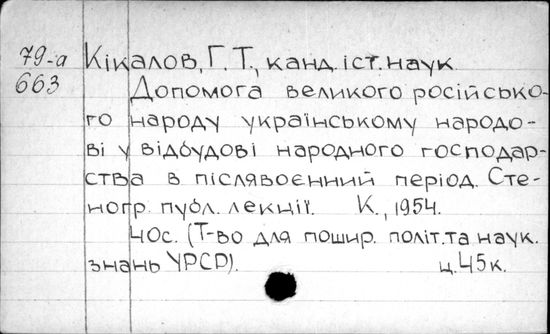 79-а Кікалов, Г. Т., канд. іст. наук
663 Допомога великого російсько-
го народу українському народо-
ві у відбудові народного господар-
ства в післявоєнний період. Сте-
ногр. публ. лекції. К., 1954.
40с. (Т-во для пошир. політ. та наук.
знань УРСР). ц. 45к.